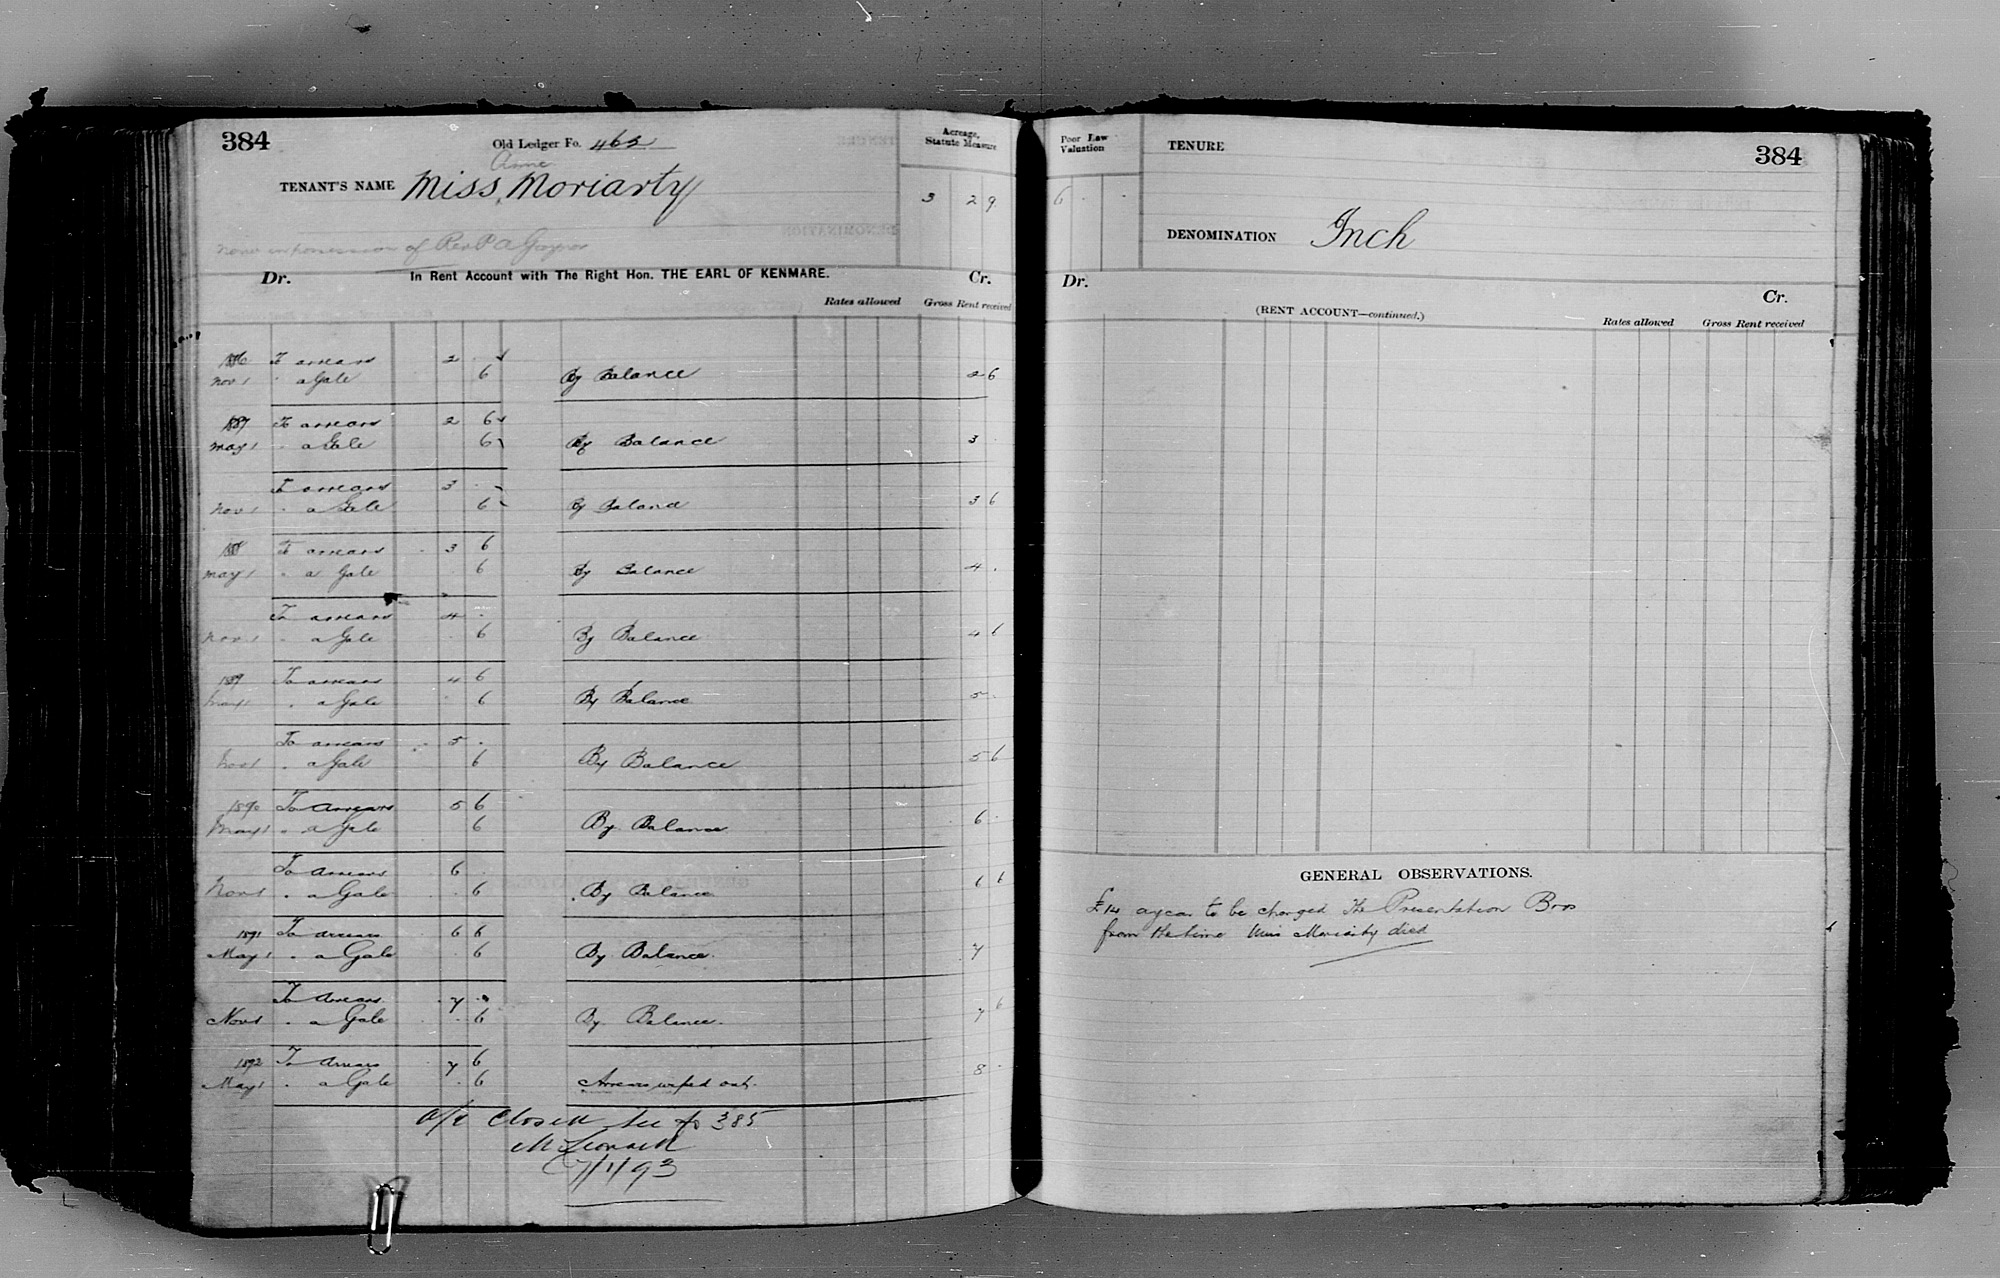 384
Old Ledger Fo. 465
Anne
TENANT'S NAME Miss Moriarty
now in possession of Rev P A
Acreage, Statute Measure
3 2 9
Dr. In Rent Account with The Right Hon. THE EARL OF KENMARE. Cr.
Rates allowed Gross Rent received
1886 To arrears 2 .
Nov 1 " a Gale 6 By Balance 2 6
1887 To arrears 2 6
May 1 " a Gale 6 By Balance 3 .
To arrears 3 .
Nov 1 " a Gale 6 By Balance 3 6
1888 To arrears 3 6
May 1 " a Gale 6 By Balance 4 .
To arrears 4 .
Nov 1 " a Gale 6 By Balance 4 6
1889 To arrears 4 6
May 1 " a Gale 6 By Balance 5 .
To arrears 5 .
Nov 1 " a Gale 6 By Balance 5 6
1890 To Arrears 5 6
May 1 " a Gale 6 By Balance 6 .
To Arrears 6 .
Nov 1 " a Gale 6 By Balance 6 6
1891 To Arrears 6 6
May 1 " a Gale 6 By Balance. 7
To Arrears 7 .
Nov 1 " a Gale 6 By Balance. 7 6
1892 To Arrears 7 6
May 1 " a Gale 6 Arrears wiped out. 8 .
a/c closed see fo 385
M Leonard
7/1/93
Poor Law Valuation
6 . .
TENURE
384
DENOMINATION Inch
Dr. Cr.
(RENT ACCOUNT—continued.)
Rates allowed Gross Rent received
GENERAL OBSERVATIONS.
£14 a year to be charged the Presentation Bros
from the time Miss Moriarty died